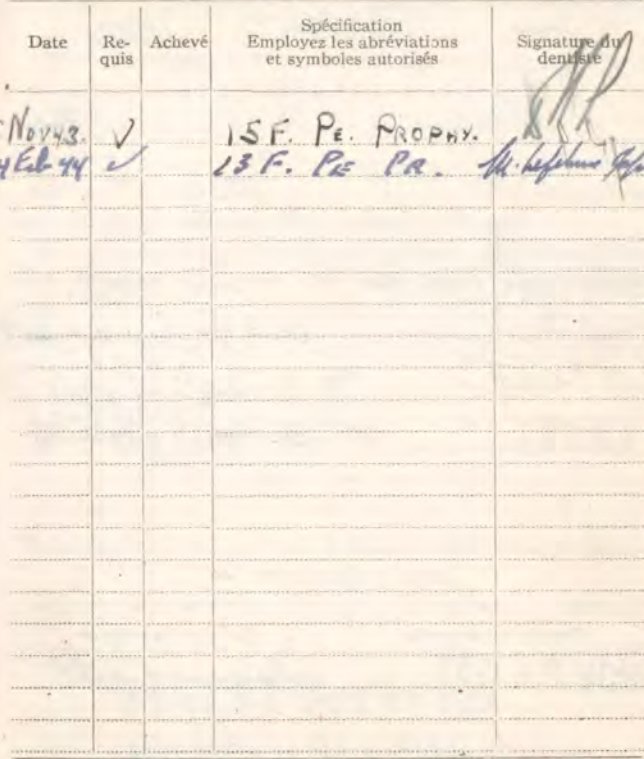 Date Re-quis Achevé Spécification Employez les abréviations et symboles autorisés Signature du dentiste
Nov 43. ✓ 15 F. PE. PROPHY.
Feb 44 ✓ 13 F. PE PR. M. Lefebvre